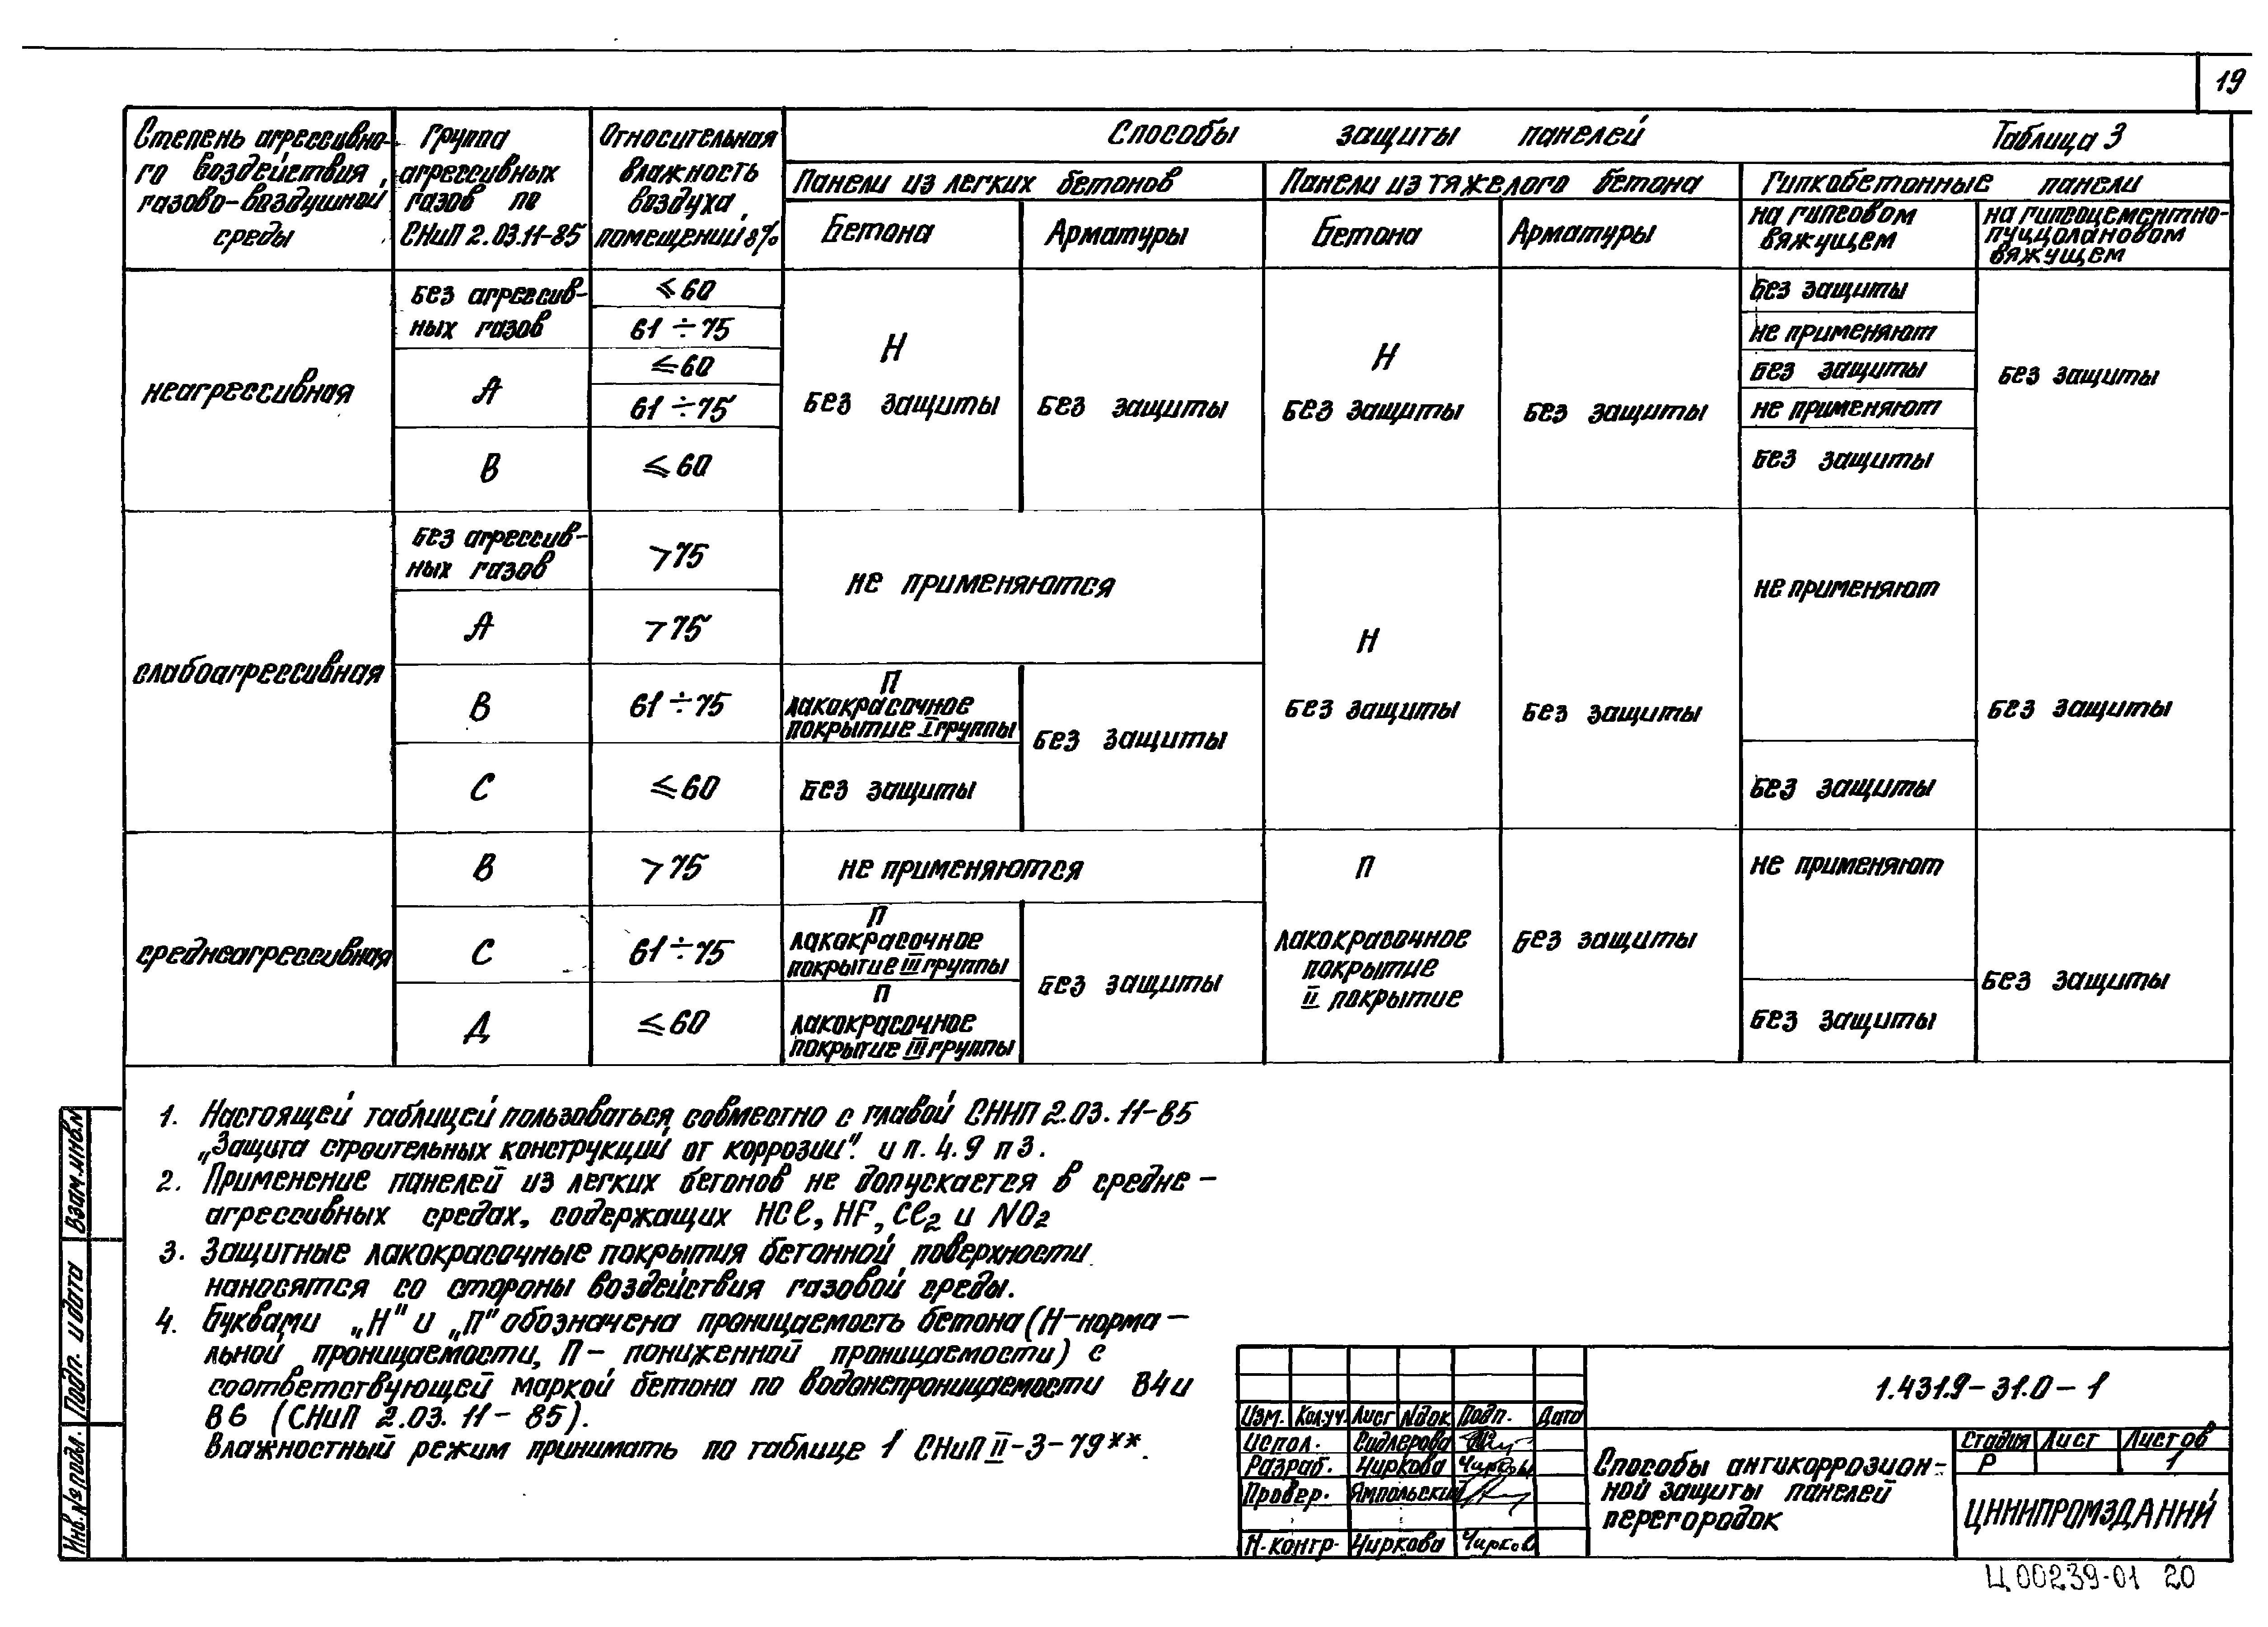 19
Степень агрессивно-
го воздействия
газово-воздушной
среды
Группа
агрессивных
газов по
СНиП 2.03.11-85
Относительная
влажность
воздуха
помещений в %
Способы защиты панелей
Таблица 3
Панели из легких бетонов
Панели из тяжелого бетона
Гипкобетонные панели
Бетона
Арматуры
Бетона
Арматуры
на гипсовом
вяжущем
на гипсоцементно-
пуццолановом
вяжущем
неагрессивная
без агрессив-
ных газов
≤ 60
61 ÷ 75
А
≤ 60
61 ÷ 75
В
≤ 60
Н
без защиты
без защиты
Н
без защиты
без защиты
без защиты
не применяют
без защиты
не применяют
без защиты
без защиты
слабоагрессивная
без агрессив-
ных газов
>75
А
>75
В
61 ÷ 75
С
≤ 60
не применяются
П
лакокрасочное
покрытие I группы
без защиты
без защиты
Н
без защиты
без защиты
не применяют
без защиты
без защиты
среднеагрессивная
В
>75
С
61 ÷ 75
Д
≤ 60
не применяются
П
лакокрасочное
покрытие III группы
П
лакокрасочное
покрытие III группы
без защиты
П
лакокрасочное
покрытие
II покрытие
без защиты
не применяют
без защиты
без защиты
1. Настоящей таблицей пользоваться совместно с главой СННП 2.03.11-85
„Защита строительных конструкций от коррозии". и п. 4.9 п 3.
2. Применение панелей из легких бетонов не допускается в средне-
агрессивных средах, содержащих HCl, HF, Cl2 и NO2
3. Защитные лакокрасочные покрытия бетонной поверхности
наносятся со стороны воздействия газовой среды.
4. Буквами „Н" и „П" обозначена проницаемость бетона (Н-норма-
льной проницаемости, П- пониженной проницаемости) с
соответствующей маркой бетона по водонепроницаемости В4 и
В6 (СНиП 2.03.11-85).
Влажностный режим принимать по таблице 1 СНиП II-3-79**.
Взам.инв.N
Подп. и дата
Инв.№ подл.
Изм. Кол.уч. Лист Nдок Подп. Дата
Испол. Сидлерова
Разраб. Чиркова Чиркова
Провер. Ямпольский
Н.контр. Чиркова Чирков
1.431.9-31.0-1
Способы антикоррозион-
ной защиты панелей
перегородок
Стадия Лист Листов
Р 1
ЦНИИПРОМЗДАНИЙ
Ц00239-01 20